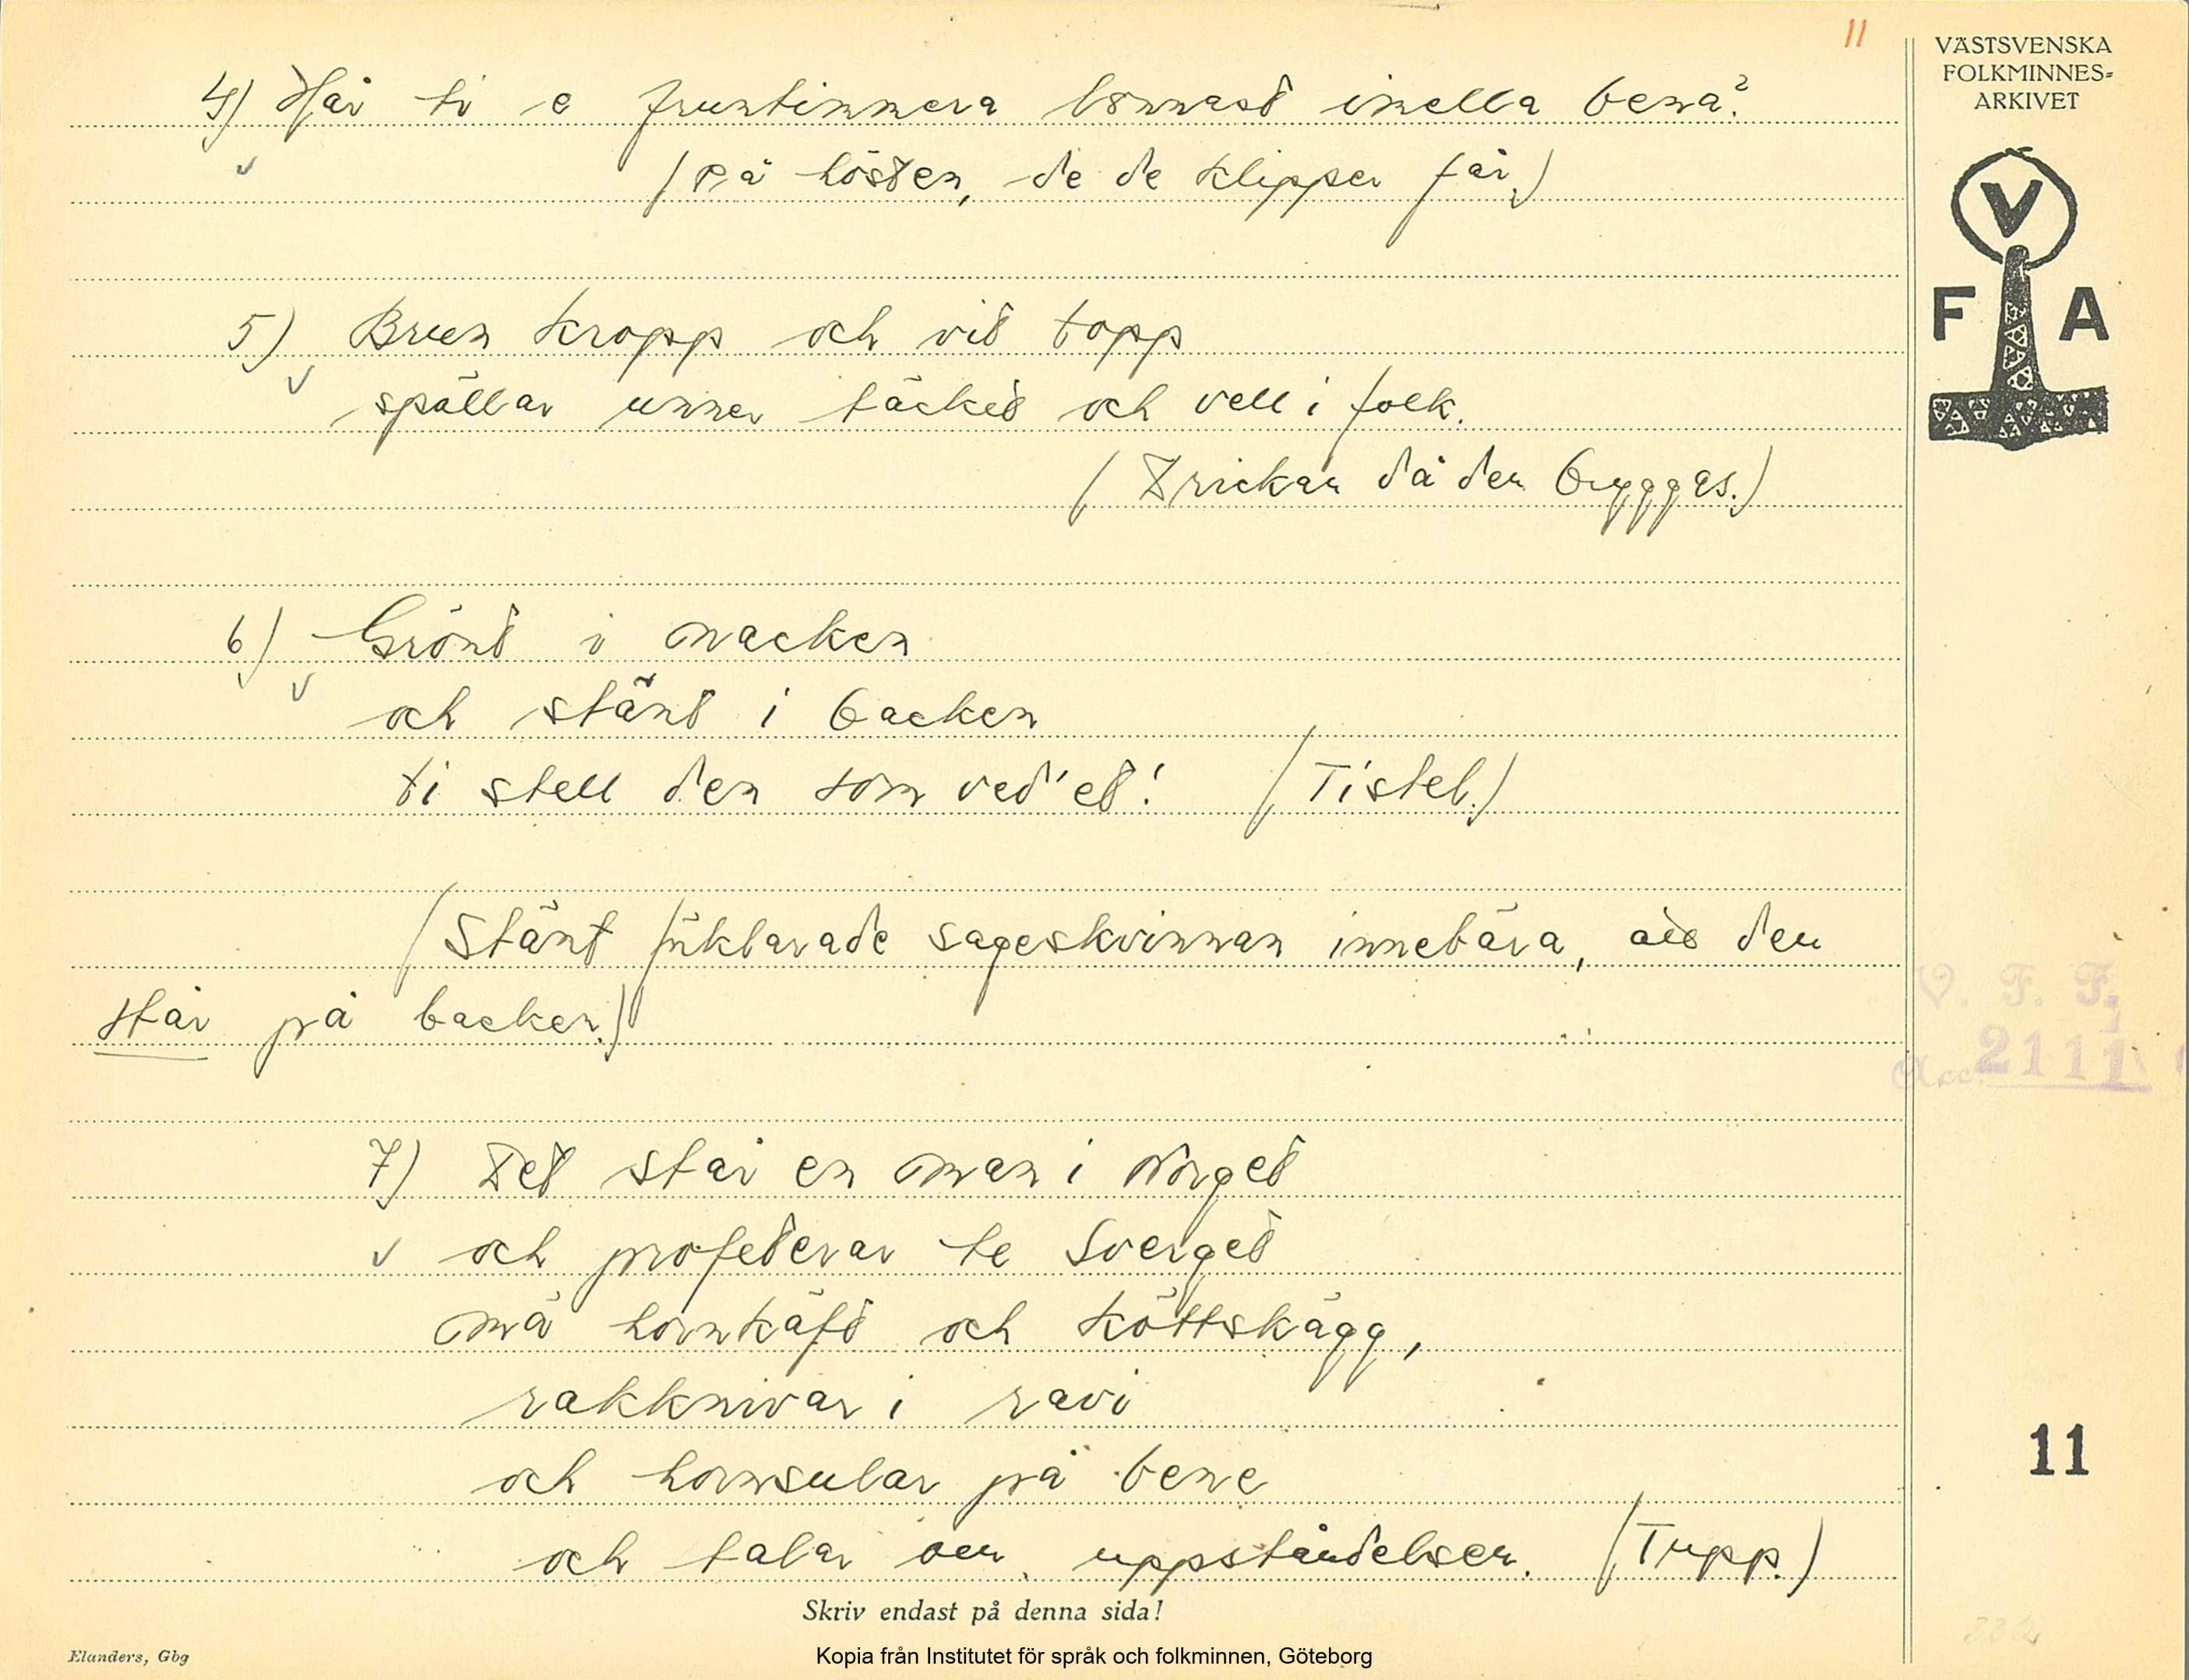 11
VÄSTSVENSKA
FOLKMINNES-
ARKIVET
V
F A
4) Når ti e fruntimmera lönnast imella bena?
(På hösten, de de klipper får.)
5) Brun kropp och vit topp
spällar unner täcket och vell i folk.
(Drickan då den brygges.)
6) Grönt i nacken
och stänt i backen
ti stell den som ved'et! (Tistel.)
(Stänt förklarade sageskvinnan innebära, att den
står på backen.)
V. F. F.
Acc. 2111
7) Det står en man i Norget
och profeterar te Sverget
mä hornkäft och köttskägg,
rakknivar i ravi
och hornsular på bene
och talar om uppståndelsen. (Tupp.)
11
Skriv endast på denna sida!
Elanders, Gbg
Kopia från Institutet för språk och folkminnen, Göteborg